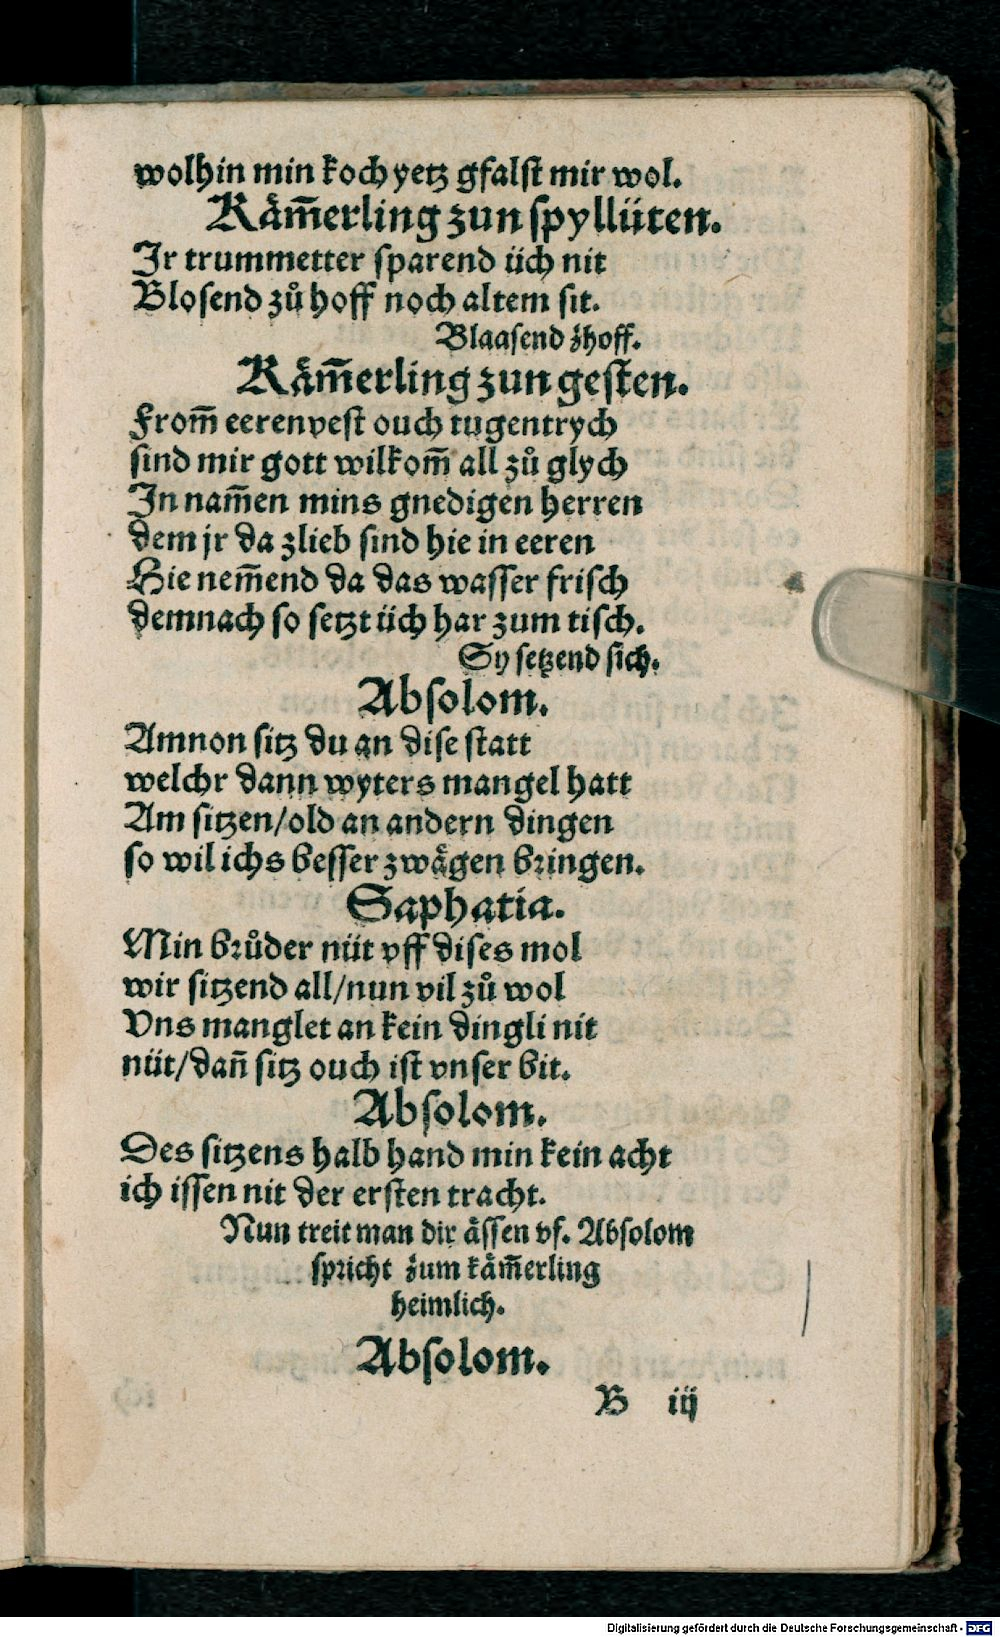 wolhin min koch yetz gfalst mir wol.
Kåm̄erling zun spyllüten.
Ir trummetter sparend üch nit
Blosend zů hoff noch altem sit.
Blaasend zhoff.
Kåm̄erling zun gesten.
From̄ eerenvest ouch tugentrych
sind mir gott wilkom̄ all zů glych
In nam̄en mins gnedigen herren
dem jr da zlieb sind hie in eeren
Hie nem̄end da das wasser frisch
demnach so setzt üch har zum tisch.
Sy setzend sich.
Absolom.
Amnon sitz du an dise statt
welchr dann wyters mangel hatt
Am sitzen/old an andern dingen
so wil ichs besser zwågen bringen.
Saphatia.
Min brůder nüt vff dises mol
wir sitzend all/nun vil zů wol
Vns manglet an kein dingli nit
nüt/dan̄ sitz ouch ist vnser bit.
Absolom.
Des sitzens halb hand min kein acht
ich issen nit der ersten tracht.
Nun treit man dir åssen vf. Absolom
spricht zum kåm̄erling
heimlich.
Absolom.
B iij
Digitalisierung gefördert durch die Deutsche Forschungsgemeinschaft - DFG